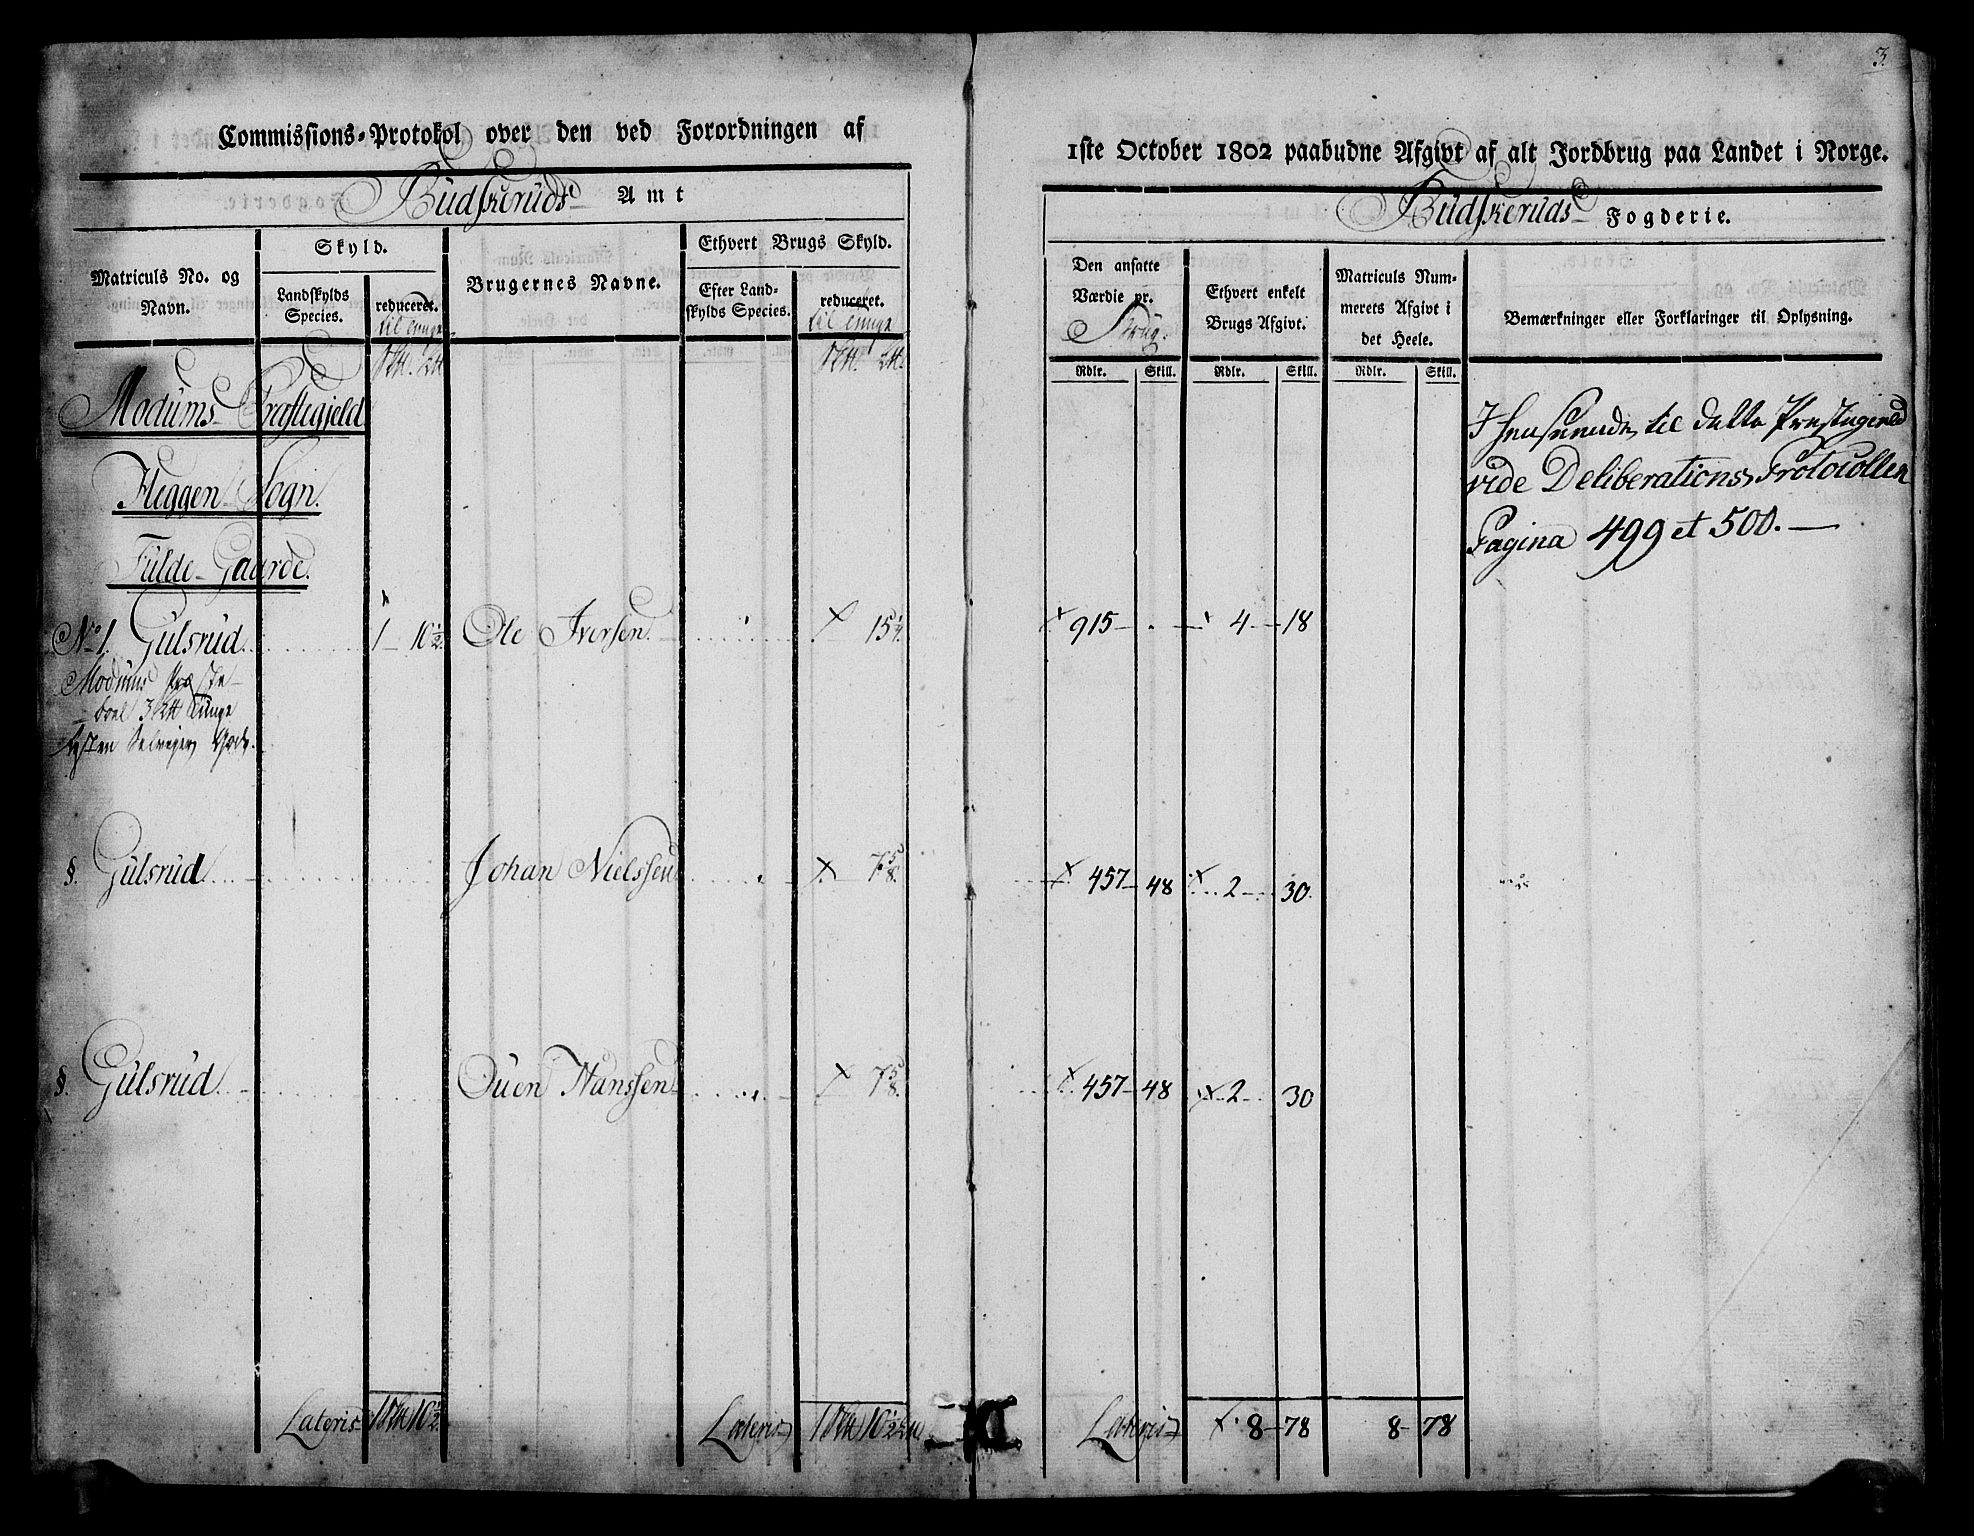 3.
Commissions-Protokol over den ved Forordningen af
1ste October 1802 paabudne Afgivt af alt Jordbrug paa Landet i Norge.
Budskeruds Amt
Budskeruds Fogderie.
Matriculs No. og Navn.
Skyld.
Landskylds Species.
reduceret.
til Tunge
Brugernes Navne.
Ethvert Brugs Skyld.
Efter Landskylds Species.
reduceret.
til Tunge
Den ansatte Værdie pr.
Brug.
Ethvert enkelt Brugs Afgivt.
Matriculs Nummerets Afgivt i det Heele.
Bemærkninger eller Forklaringer til Oplysning.
Rdlr. Skill. Rdlr. Skill. Rdlr. Skill.
Modums Præstegjeld
Heggen Sogn.
Fulde Gaarde.
I Henseende til dette Præstegield
vide Deliberations Protocollen
Pagina 499 et 500.
No 1. Gulsrud. 1 10 1/2. Ole Iversen. 15 1/4. 915 - . - 4 - 18
Modums Præste-
boel 3 Tunge
§. Gulsrud. Johan Nielssen 7 5/8. 457 - 48 2 - 30.
§. Gulsrud. Ouen Hanssen 7 5/8. 457 - 48 2 - 30
Lateris 1 10 1/2. Lateris 1 10 1/2 Lateris 8 - 78 8 - 78